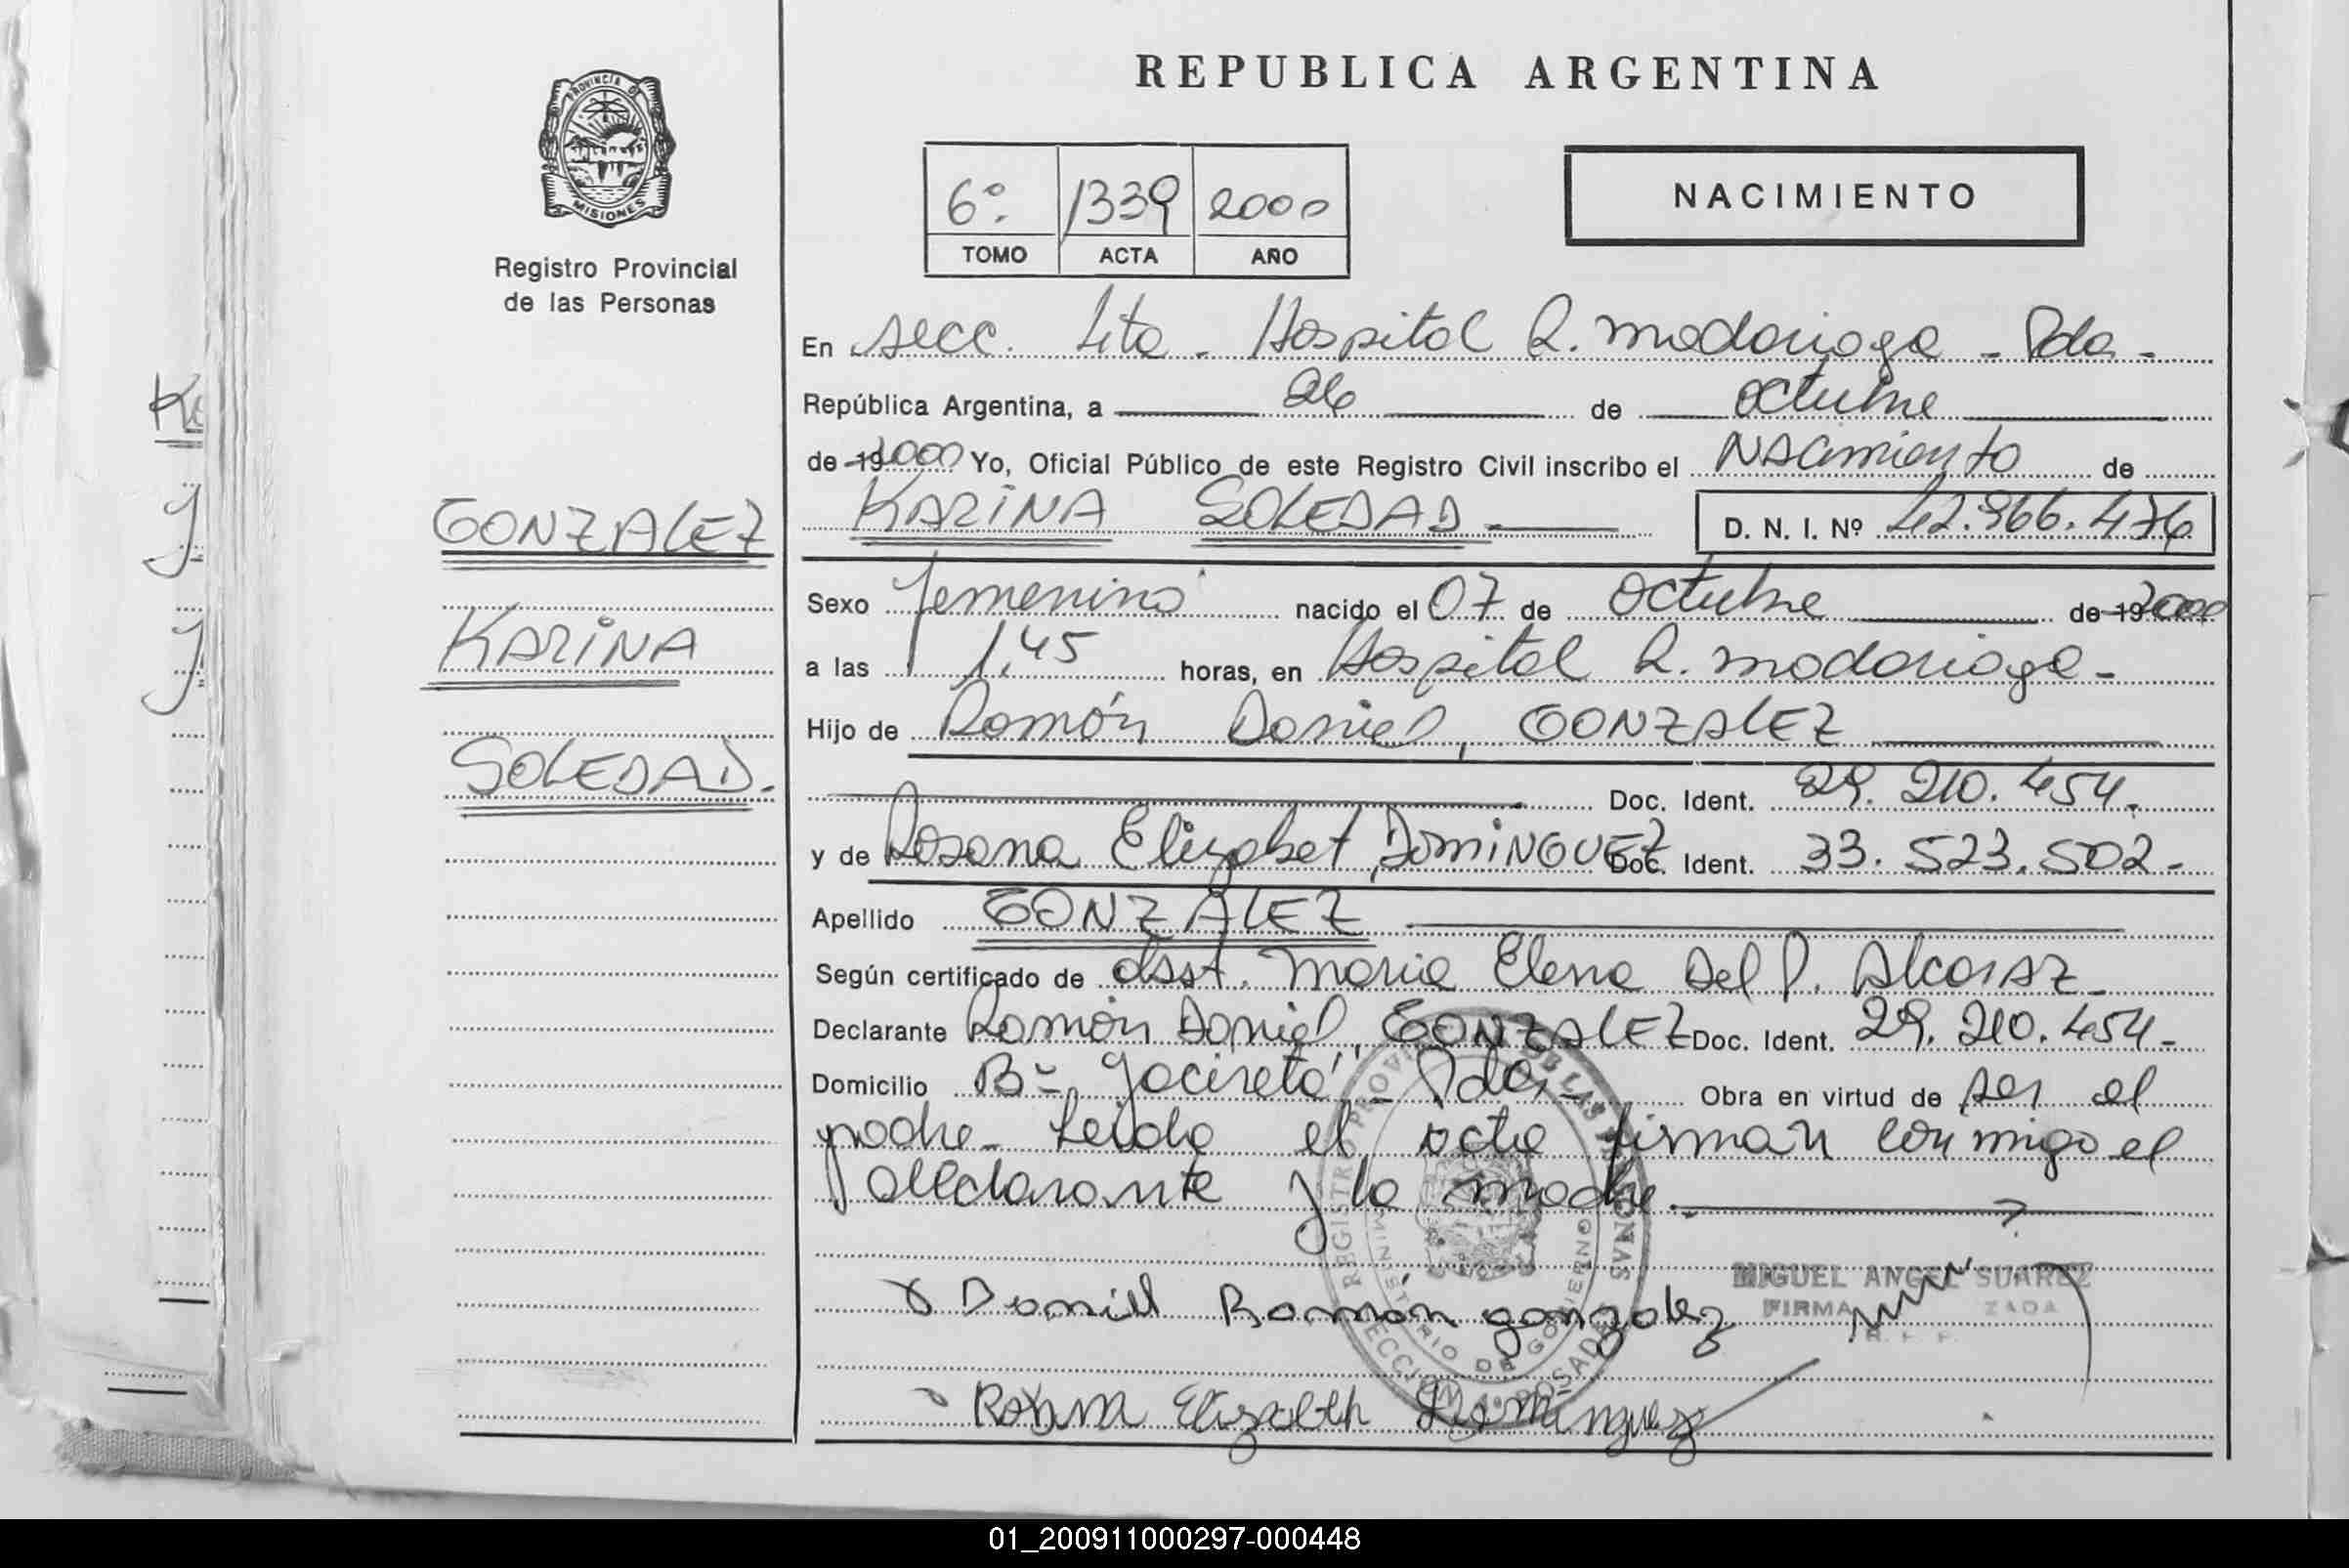 REPUBLICA ARGENTINA
PROVINCIA DE
MISIONES
Registro Provincial
de las Personas
6º. 1339 2000
TOMO ACTA AÑO
NACIMIENTO
En secc. 4ta. Hospital R. Madariaga - Pdas -
República Argentina, a 26 de octubre
de 19 2000 Yo, Oficial Público de este Registro Civil inscribo el NACimiento de
KARINA SOLEDAD D. N. I. Nº 42.966.476
GONZALEZ
KARINA
SOLEDAD.
Sexo femenino nacido el 07 de octubre de 19 2000
a las 1,45 horas, en Hospital R. Madariaga -
Hijo de Ramón Daniel, GONZALEZ
Doc. Ident. 29.210.454.
y de Rosana Elizabet, DOMINGUEZ Doc. Ident. 33.523.502-
Apellido GONZALEZ
Según certificado de Obst. Maria Elena Del P. Alcaraz-
Declarante Ramón Daniel, GONZALEZ Doc. Ident. 29.210.454-
Domicilio Bº Yacireta' - Pdas - Obra en virtud de ser el
padre- Leida el acta firman conmigo el
declarante y la madre.
REGISTRO PROVINCIAL DE LAS PERSONAS
MINISTERIO DE GOBIERNO
SECCION 4º POSADAS
MIGUEL ANGEL SUAREZ
FIRMA ZADA
x Daniel Ramón gonzalez
Roxana Elizabeth Dominguez
01_200911000297-000448